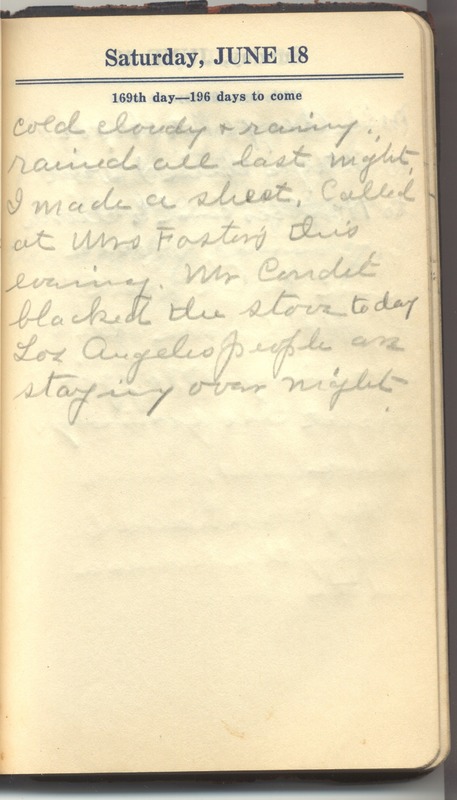 Saturday, JUNE 18
169th day—196 days to come
cold cloudy + rainy.
rained all last night.
I made a sheet. Called
at Mrs Fosters this
evening. Mr Condit
blacked the stove today
Los Angeles people are
staying over night.